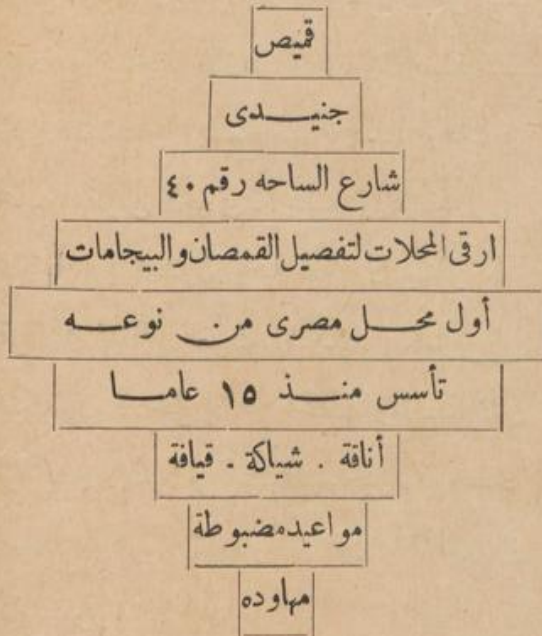 قميص
جنيدى
شارع الساحه رقم ٤٠
ارقى المحلات لتفصيل القمصان والبيجامات
أول محل مصرى من نوعه
تأسس منذ ١٥ عاما
أناقة . شياكة . قيافة
مواعيد مضبوطة
مهاوده